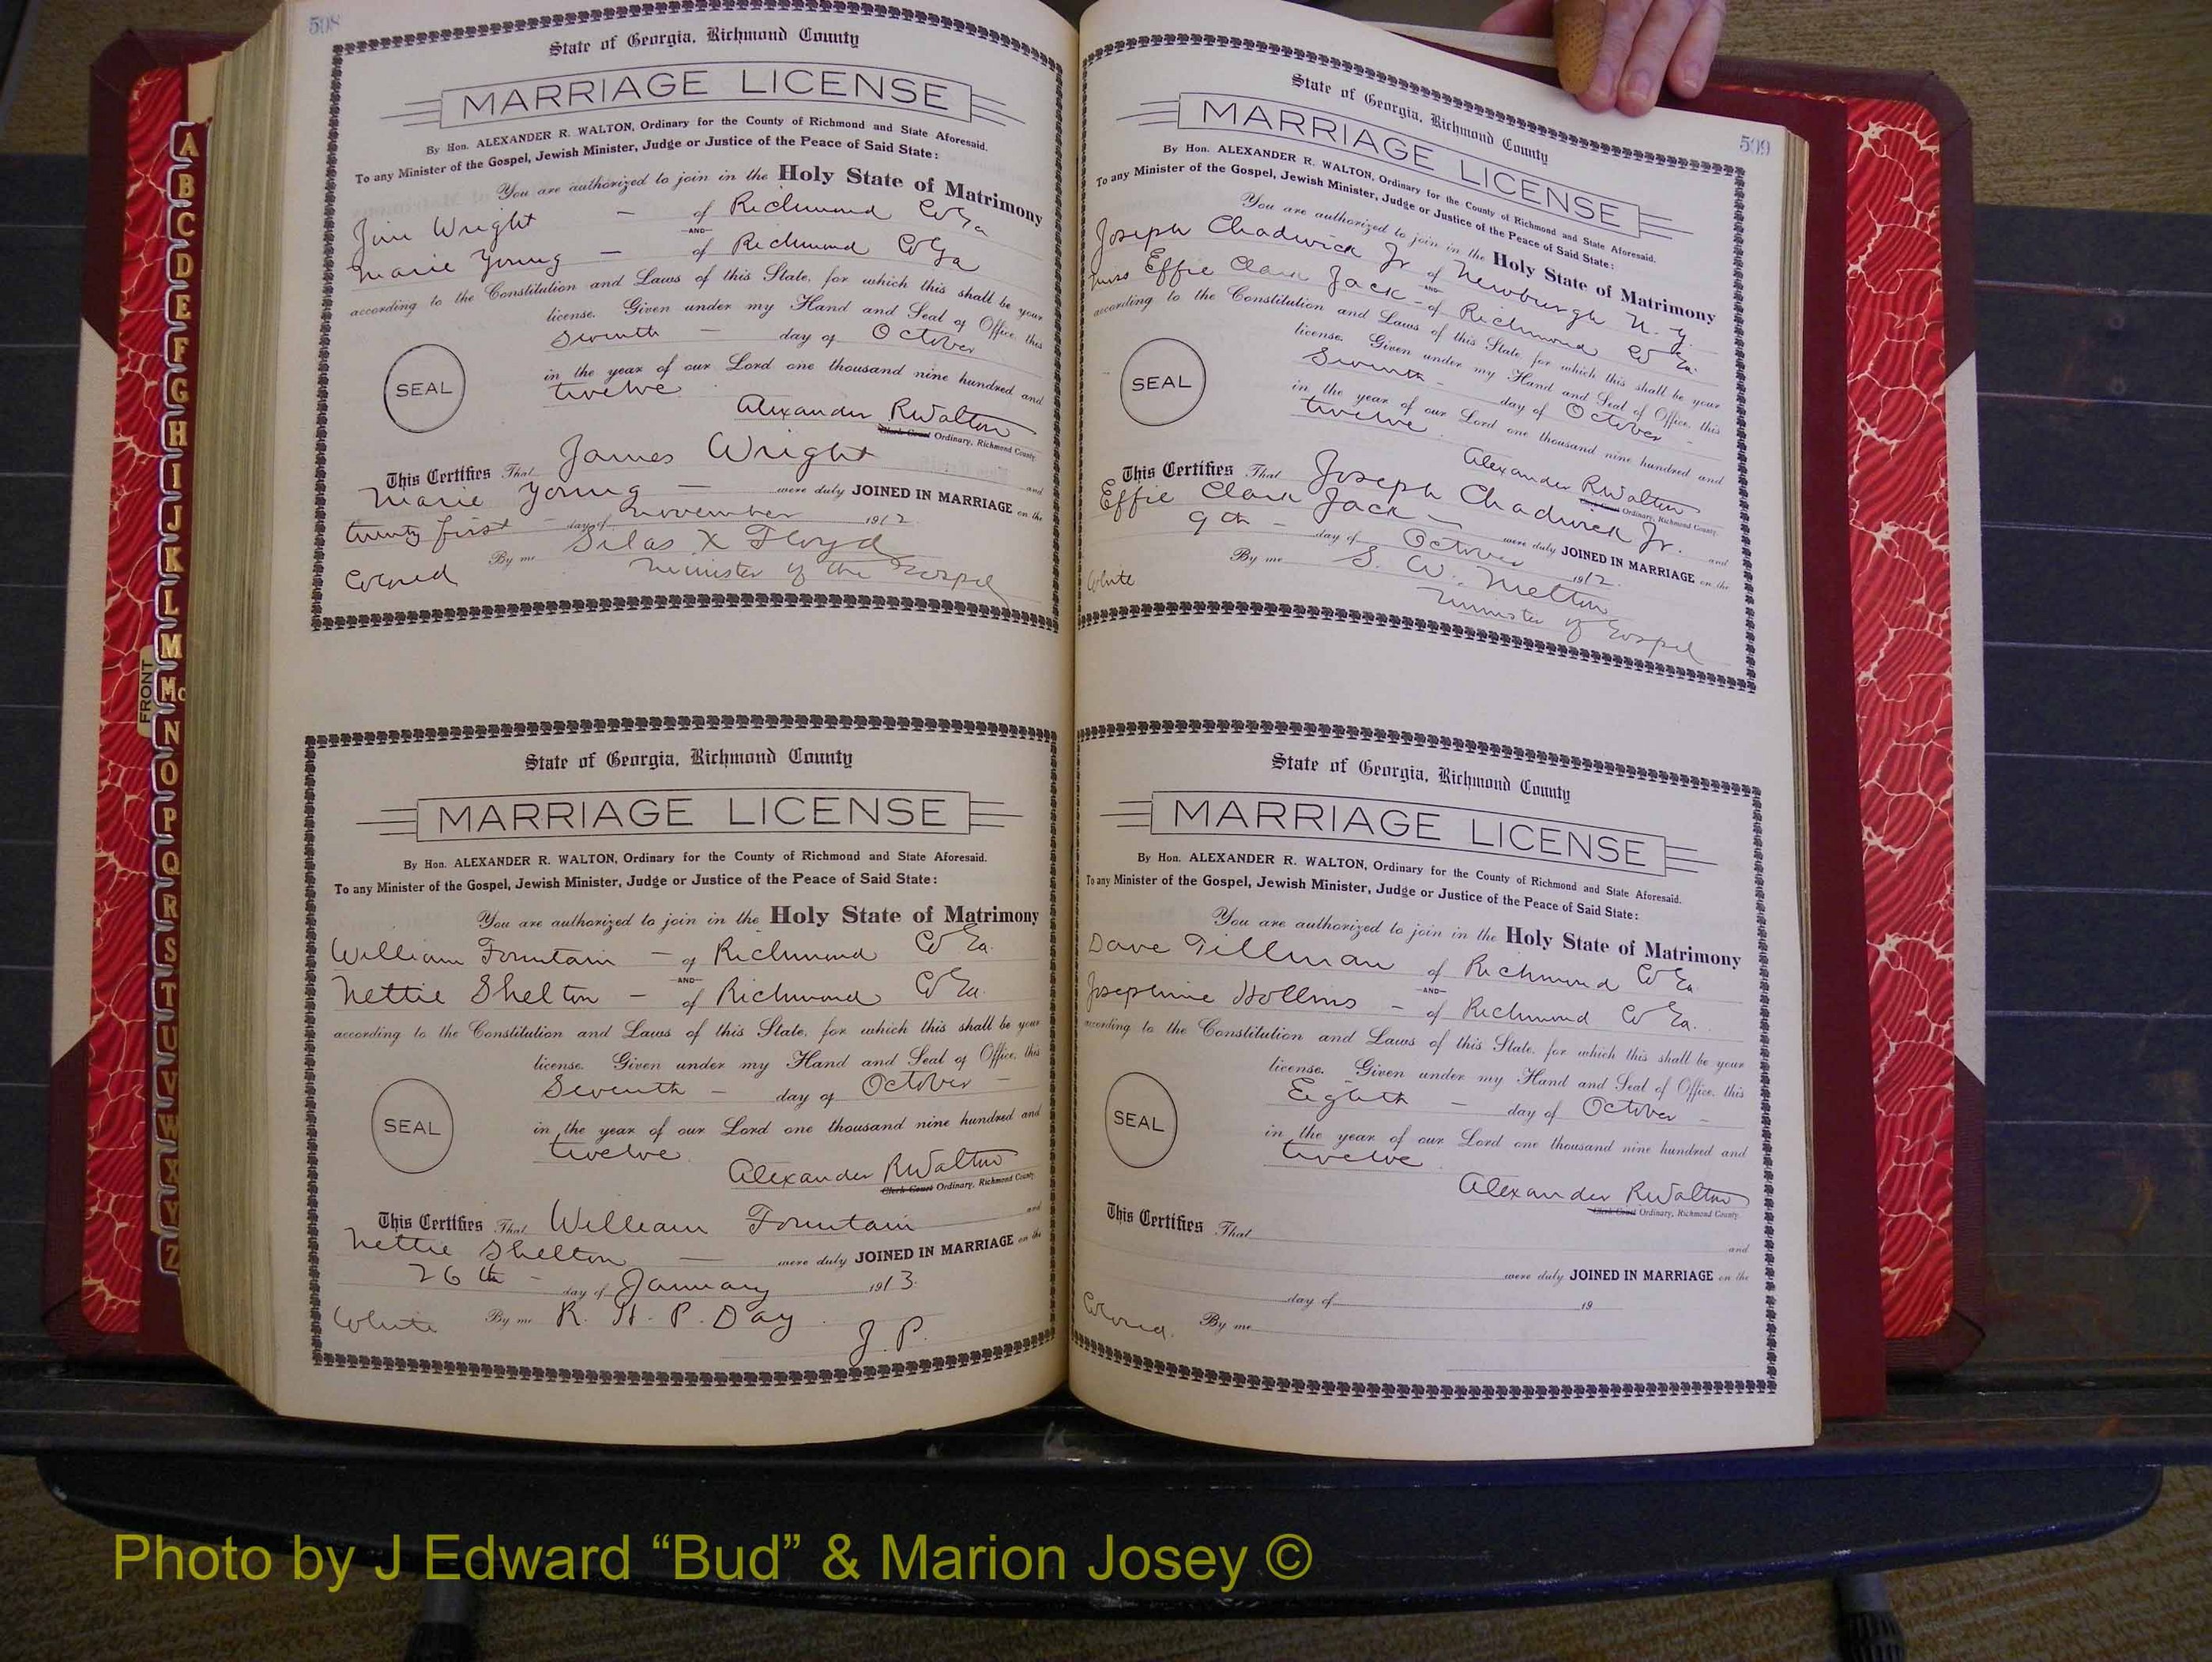 598
State of Georgia, Richmond County
MARRIAGE LICENSE
By Hon. ALEXANDER R. WALTON, Ordinary for the County of Richmond and State Aforesaid.
To any Minister of the Gospel, Jewish Minister, Judge or Justice of the Peace of Said State:
You are authorized to join in the Holy State of Matrimony
Jim Wright - of Richmond Co Ga
AND
Marie Young - of Richmond Co Ga
according to the Constitution and Laws of this State, for which this shall be your
license. Given under my Hand and Seal of Office, this
Seventh - day of October
in the year of our Lord one thousand nine hundred and
twelve
SEAL
Alexander R Walton
Clerk Court Ordinary, Richmond County
This Certifies That James Wright and
Marie Young - were duly JOINED IN MARRIAGE on the
twenty first - day of November 1912
By me Silas X Floyd
Colored
Minister of the Gospel
State of Georgia, Richmond County
MARRIAGE LICENSE
By Hon. ALEXANDER R. WALTON, Ordinary for the County of Richmond and State Aforesaid.
To any Minister of the Gospel, Jewish Minister, Judge or Justice of the Peace of Said State:
You are authorized to join in the Holy State of Matrimony
William Fountain - of Richmond Co Ga.
AND
Nettie Shelton - of Richmond Co Ga.
according to the Constitution and Laws of this State, for which this shall be your
license. Given under my Hand and Seal of Office, this
Seventh - day of October -
in the year of our Lord one thousand nine hundred and
twelve
SEAL
Alexander R Walton
Clerk Court Ordinary, Richmond County
This Certifies That William Fountain and
Nettie Shelton - were duly JOINED IN MARRIAGE on the
26th - day of January 1913
White By me R. H. P. Day
J. P.
599
State of Georgia, Richmond County
MARRIAGE LICENSE
By Hon. ALEXANDER R. WALTON, Ordinary for the County of Richmond and State Aforesaid.
To any Minister of the Gospel, Jewish Minister, Judge or Justice of the Peace of Said State:
You are authorized to join in the Holy State of Matrimony
Joseph Chadwick Jr of Newburgh N. Y.
AND
Miss Effie Clark Jack - of Richmond Co Ga.
according to the Constitution and Laws of this State, for which this shall be your
license. Given under my Hand and Seal of Office, this
Seventh - day of October -
in the year of our Lord one thousand nine hundred and
twelve
SEAL
Alexander R Walton
Clerk Court Ordinary, Richmond County
This Certifies That Joseph Chadwick Jr. and
Effie Clark Jack - were duly JOINED IN MARRIAGE on the
9th - day of October 1912.
White By me S. W. Melton
Minister of Gospel
State of Georgia, Richmond County
MARRIAGE LICENSE
By Hon. ALEXANDER R. WALTON, Ordinary for the County of Richmond and State Aforesaid.
To any Minister of the Gospel, Jewish Minister, Judge or Justice of the Peace of Said State:
You are authorized to join in the Holy State of Matrimony
Dave Tillman of Richmond Co Ga
AND
Josephine Hollins - of Richmond Co Ga.
according to the Constitution and Laws of this State, for which this shall be your
license. Given under my Hand and Seal of Office, this
Eighth - day of October -
in the year of our Lord one thousand nine hundred and
twelve
SEAL
Alexander R Walton
Clerk Court Ordinary, Richmond County
This Certifies That and
were duly JOINED IN MARRIAGE on the
day of 19
Colored. By me
FRONT
A
B
C
D
E
F
G
H
I
J
K
L
M
Mc
N
O
P
Q
R
S
T
U
V
W
X
Y
Z
Photo by J Edward “Bud” & Marion Josey ©